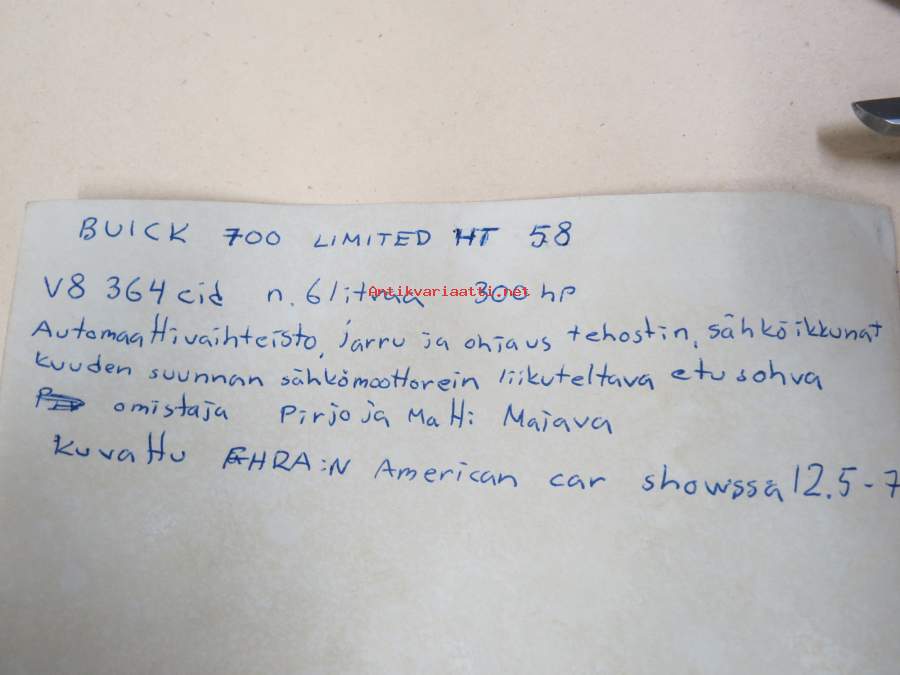 BUICK 700 LIMITED HT 58
V8 364 cid n. 6 litraa 300 hp
Antikvariaatti.net
Automaattivaihteisto, jarru ja ohjaus tehostin, sähköikkunat
kuuden suunnan sähkömoottorein liikuteltava etusohva
omistaja Pirjo ja Matti Majava
Kuvattu FHRA:N American car showssa 12.5-7